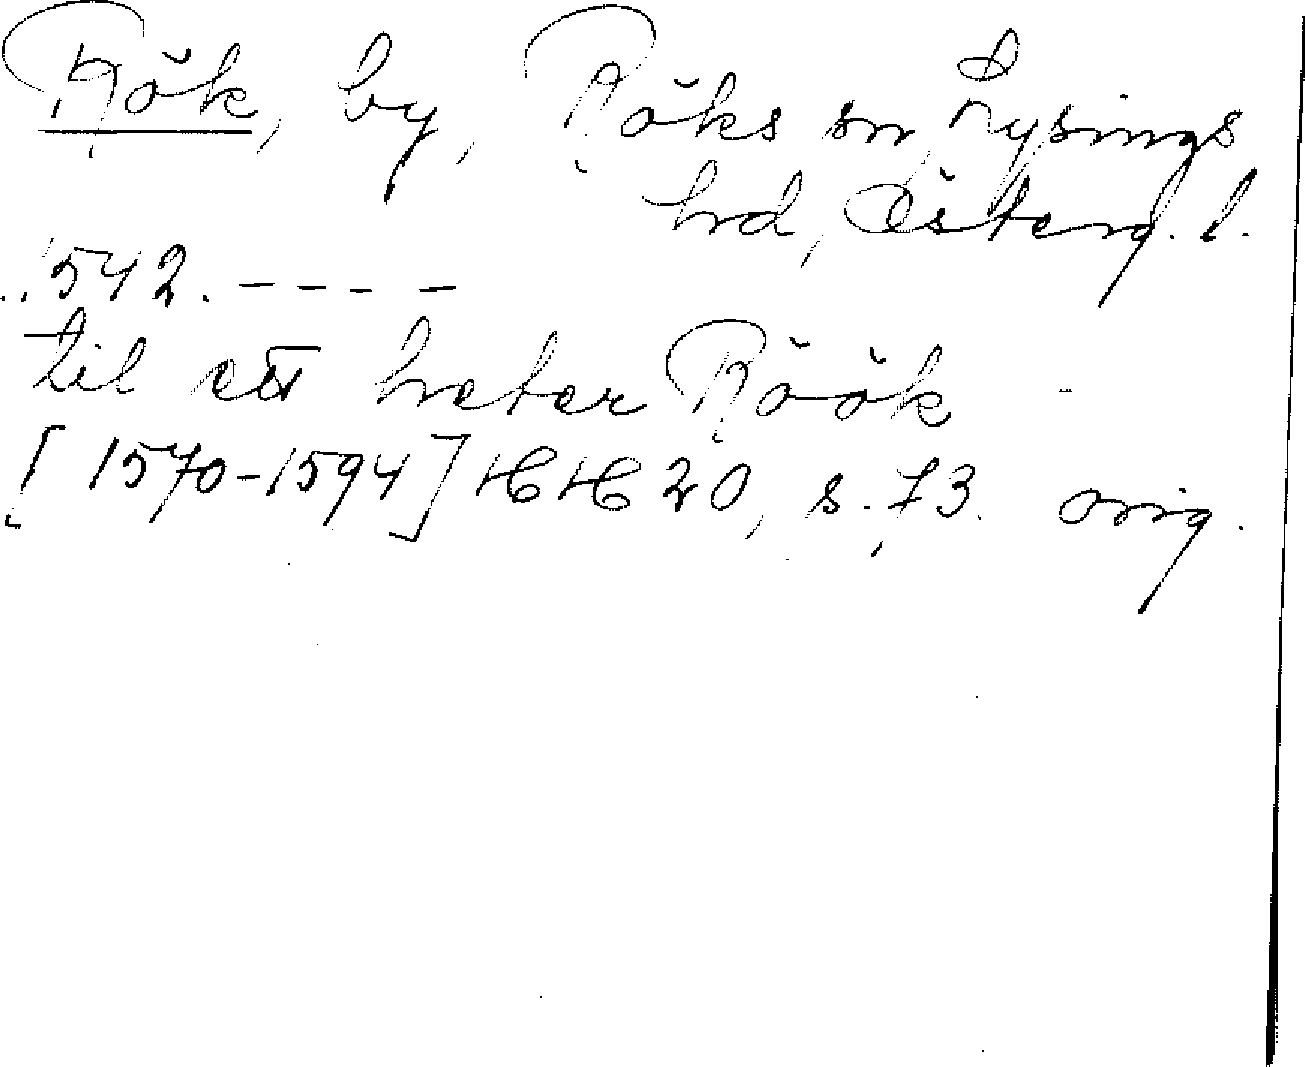 Rök, by, Röks sn, Lysings
hrd, Österg. l.
1542. - - - -
til ett heter Röök -
[1570-1594] HH 20, s. 73. orig.